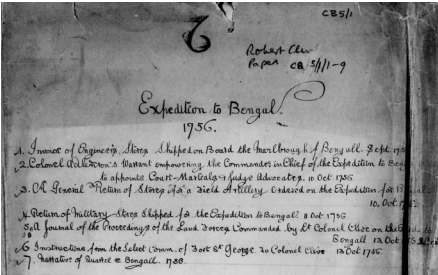 CB5/1
Robert Clive
Papers CB 5/1/1-9
Expedition to Bengal.
1756.
1. Invoice of Engineers Stores Shipped on Board the Marlbrough for Bengall. Sept 1756
2. Colonel Warrant empowering the Commander in Chief of the Expedition to
to appoint Court-Martials & Judge Advocates. 11 Oct 1756
3. A General Return of Stores for a Field Artillery Ordered on the Expedition for
10. Oct.
4. Return of Military Stores Shipped for the Expedition to Bengal. 11 Oct 1756
5. A Journal of the Proceedings of the Land Forces Commanded by Lt Colonel Clive on the
Bengall 13 Oct
6 Instructions from the Select Comm. of Fort St George to Colonel Clive 13 Oct 1756.
7. Narrative of Bengall. 1758.